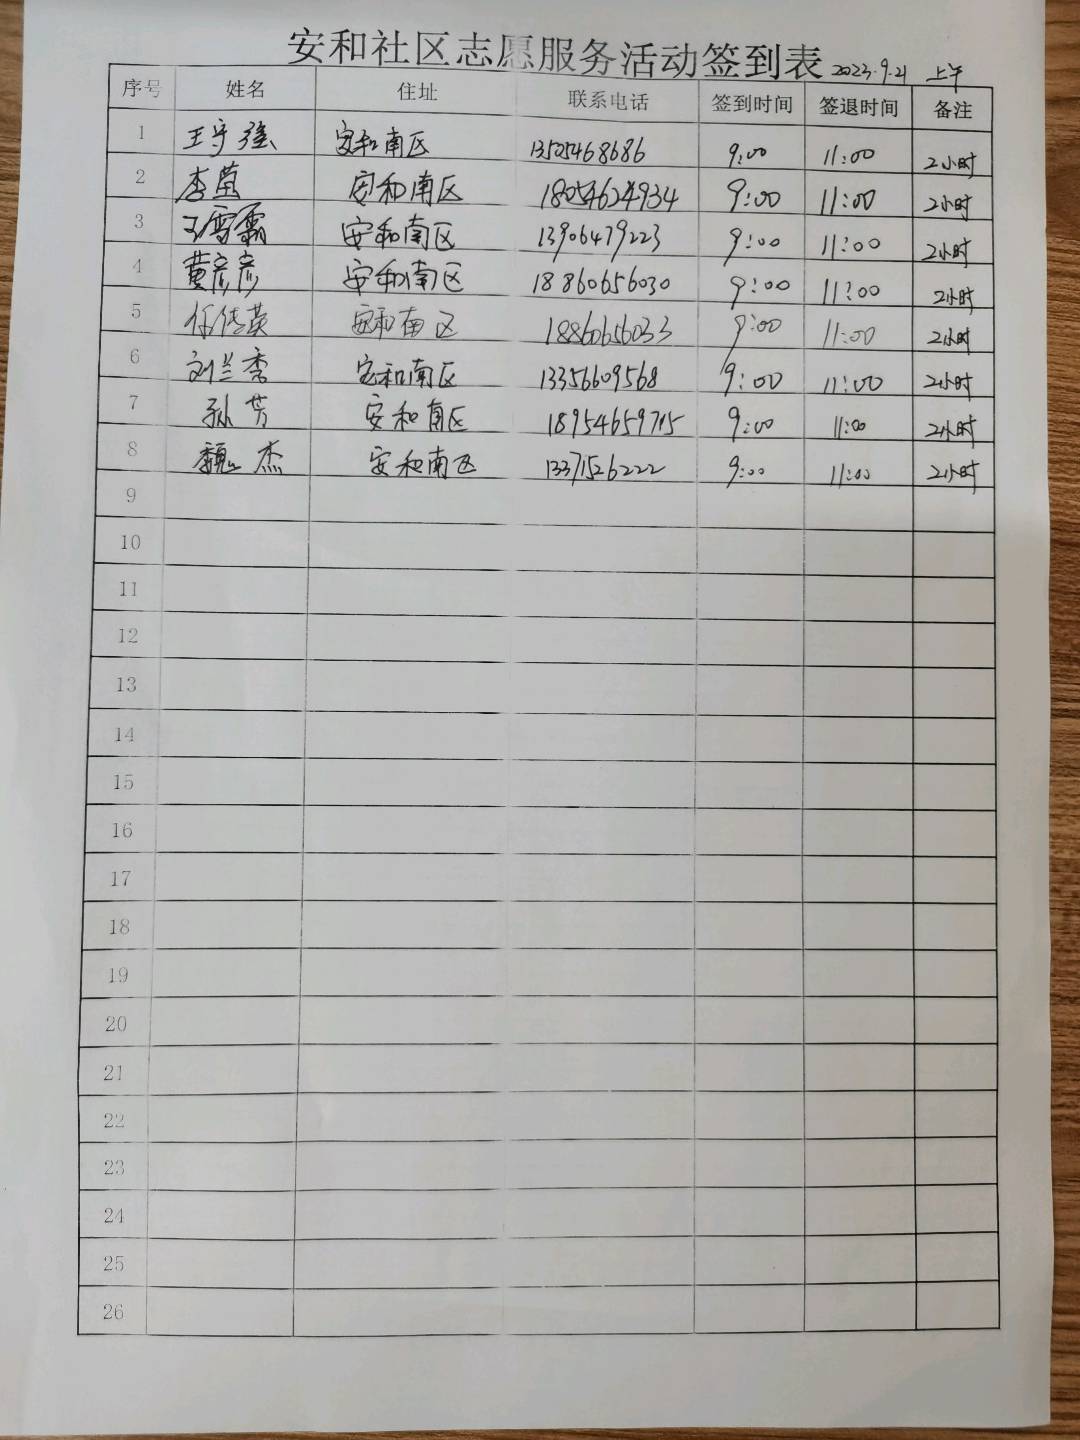 安和社区志愿服务活动签到表 2023.9.21 上午
序号 姓名 住址 联系电话 签到时间 签退时间 备注
1 王守强 安和南区 13505468686 9:00 11:00 2小时
2 李莹 安和南区 18054624934 9:00 11:00 2小时
3 王雪霜 安和南区 13906479223 9:00 11:00 2小时
4 黄彦彦 安和南区 18860656030 9:00 11:00 2小时
5 任传英 安和南区 18860656033 9:00 11:00 2小时
6 刘兰秀 安和南区 13356609568 9:00 11:00 2小时
7 孙芳 安和南区 18954659715 9:00 11:00 2小时
8 魏杰 安和南区 13371526222 9:00 11:00 2小时
9
10
11
12
13
14
15
16
17
18
19
20
21
22
23
24
25
26